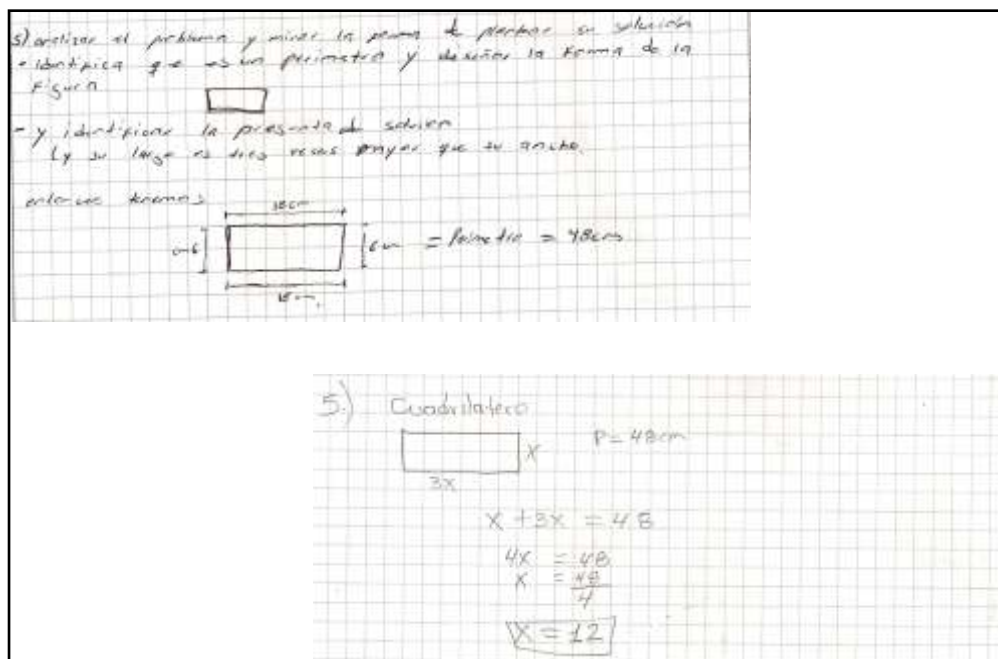 5) analizar el problema y mirar la forma de plantear su solución
- identifica que es un perimetro y diseñar la forma de la
figura
- y identificar la de solución
Ly su largo es tres veces mayor que su ancho.
entonces tenemos
18cm
6cm = Perimetro = 48cm
18cm.
5.) Cuadrilatero
X P = 48cm
3X
X + 3X = 48
4X = 48
X = 48
4
X = 12